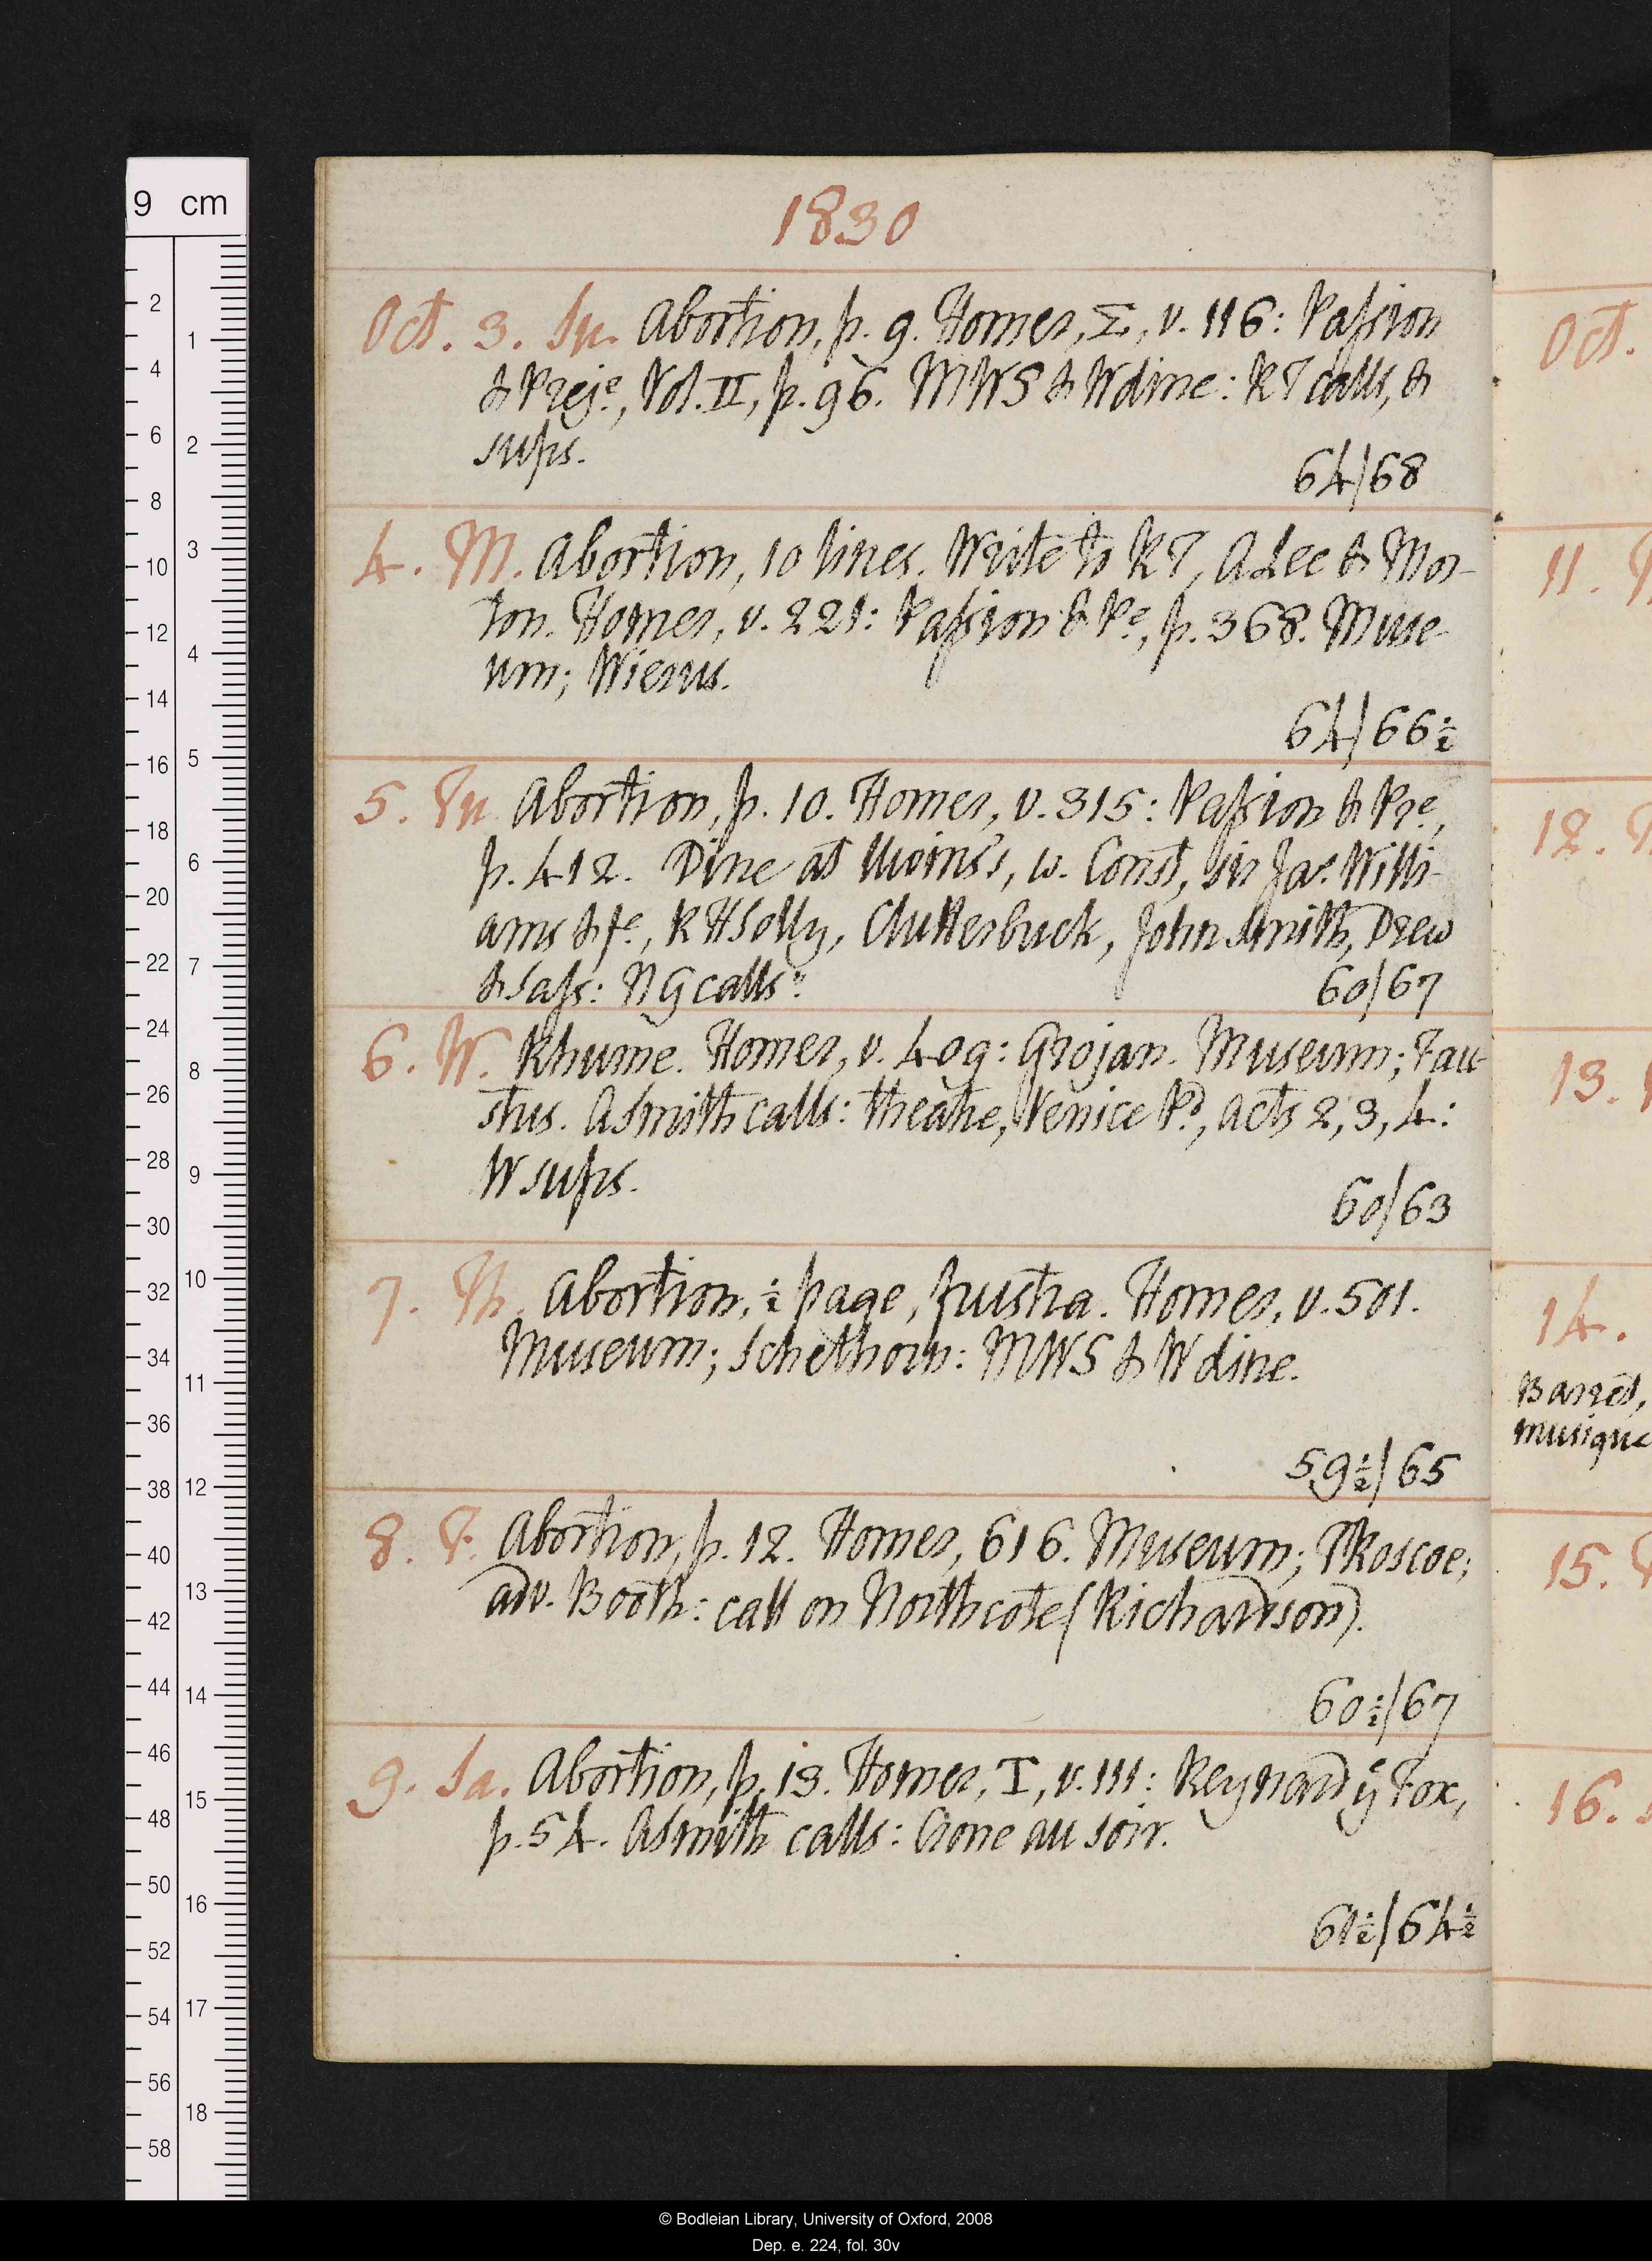 1830
Oct. 3. Su. Abortion, p. 9. Homer, Σ, v. 116: Passion
& Preje, Vol. II, p. 96. MWS & W dine: RT calls, &
sups.
64/68
4. M. Abortion, 10 lines. Write to RT, A Lee & Mor-
ton. Homer, v. 221: Passion & Pe, p. 368. Muse-
um; Wierus.
64/66½
5. Tu. Abortion, p. 10. Homer, v. 315: Passion & Pre,
p. 412. Dine at Moins's, w. Const, sir Jas Willi-
ams & fe, RHSolly, Clutterbuck, John Smith, Drew
& Sass: NG calls:
60/67
6. W. Rhume. Homer, v. 409: Grojan. Museum; Fau-
stus. ASmith calls: theatre, Venice Pd, acts 2, 3, 4:
W sups.
60/63
7. Th. Abortion, ½ page, frustra. Homer, v. 501.
Museum; Schelhorn: MWS & W dine.
59½/65
8. F. Abortion, p. 12. Homer, 616. Museum; TRoscoe;
adv. Booth: call on Northcote (Richardson).
60½/67
9. Sa. Abortion, p. 13. Homer, T, v. 111: Reynard ye Fox,
p. 54. ASmith calls: Gone au soir.
61½/64½
Oct.
11.
12.
13.
14.
Barret,
musique
15.
16.
9 cm
2
4
6
8
10
12
14
16
18
20
22
24
26
28
30
32
34
36
38
40
42
44
46
48
50
52
54
56
58
1
2
3
4
5
6
7
8
9
10
11
12
13
14
15
16
17
18
© Bodleian Library, University of Oxford, 2008
Dep. e. 224, fol. 30v